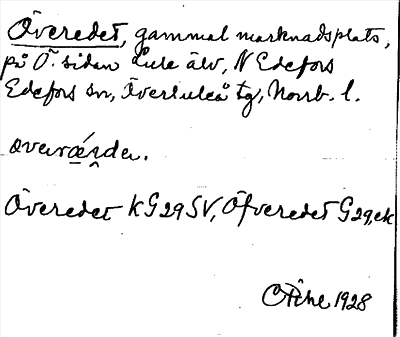 Överedet, gammal marknadsplats,
på Ö. sidan Lule älv, N Edefors
Edefors sn, Överluleå tg, Norrb. l.
Överedet KG29SV, Öfveredet G29, ek
1928